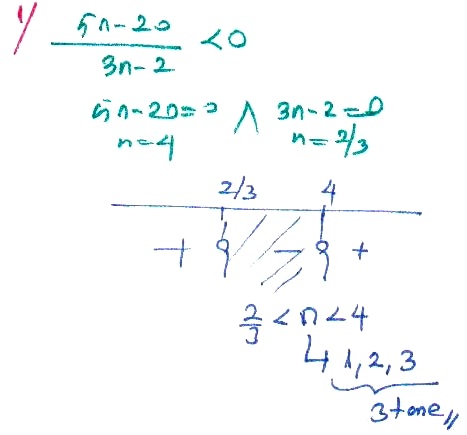 1) (5n-20)/(3n-2) < 0
5n-20=0 ∧ 3n-2=0
n=4 n=2/3
2/3 4
+ - +
2/3 < n < 4
↳ 1, 2, 3
3 tane //